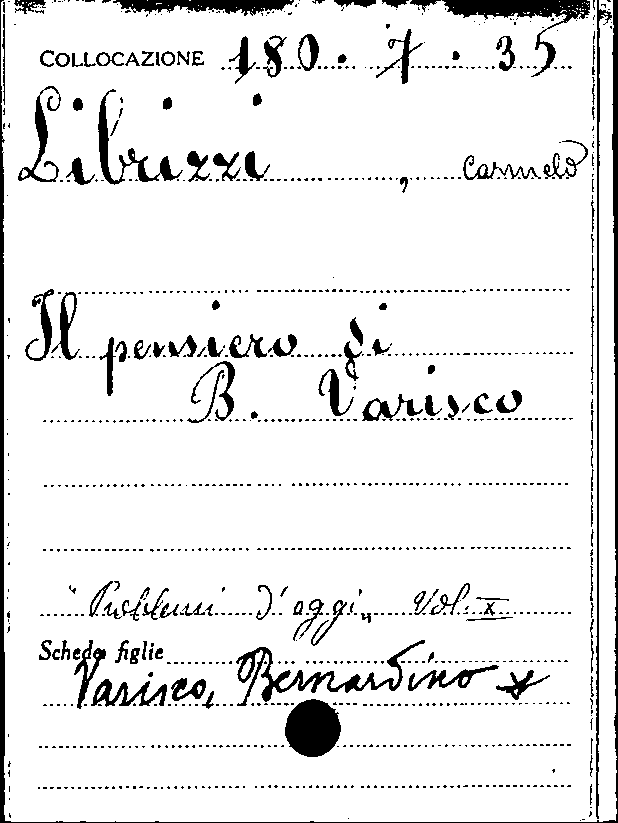 COLLOCAZIONE 180. 7. 35
Librizzi, Carmelo
Il pensiero di
B. Varisco
"Problemi d'oggi„ Vol. X
Schede figlie
Varisco, Bernardino